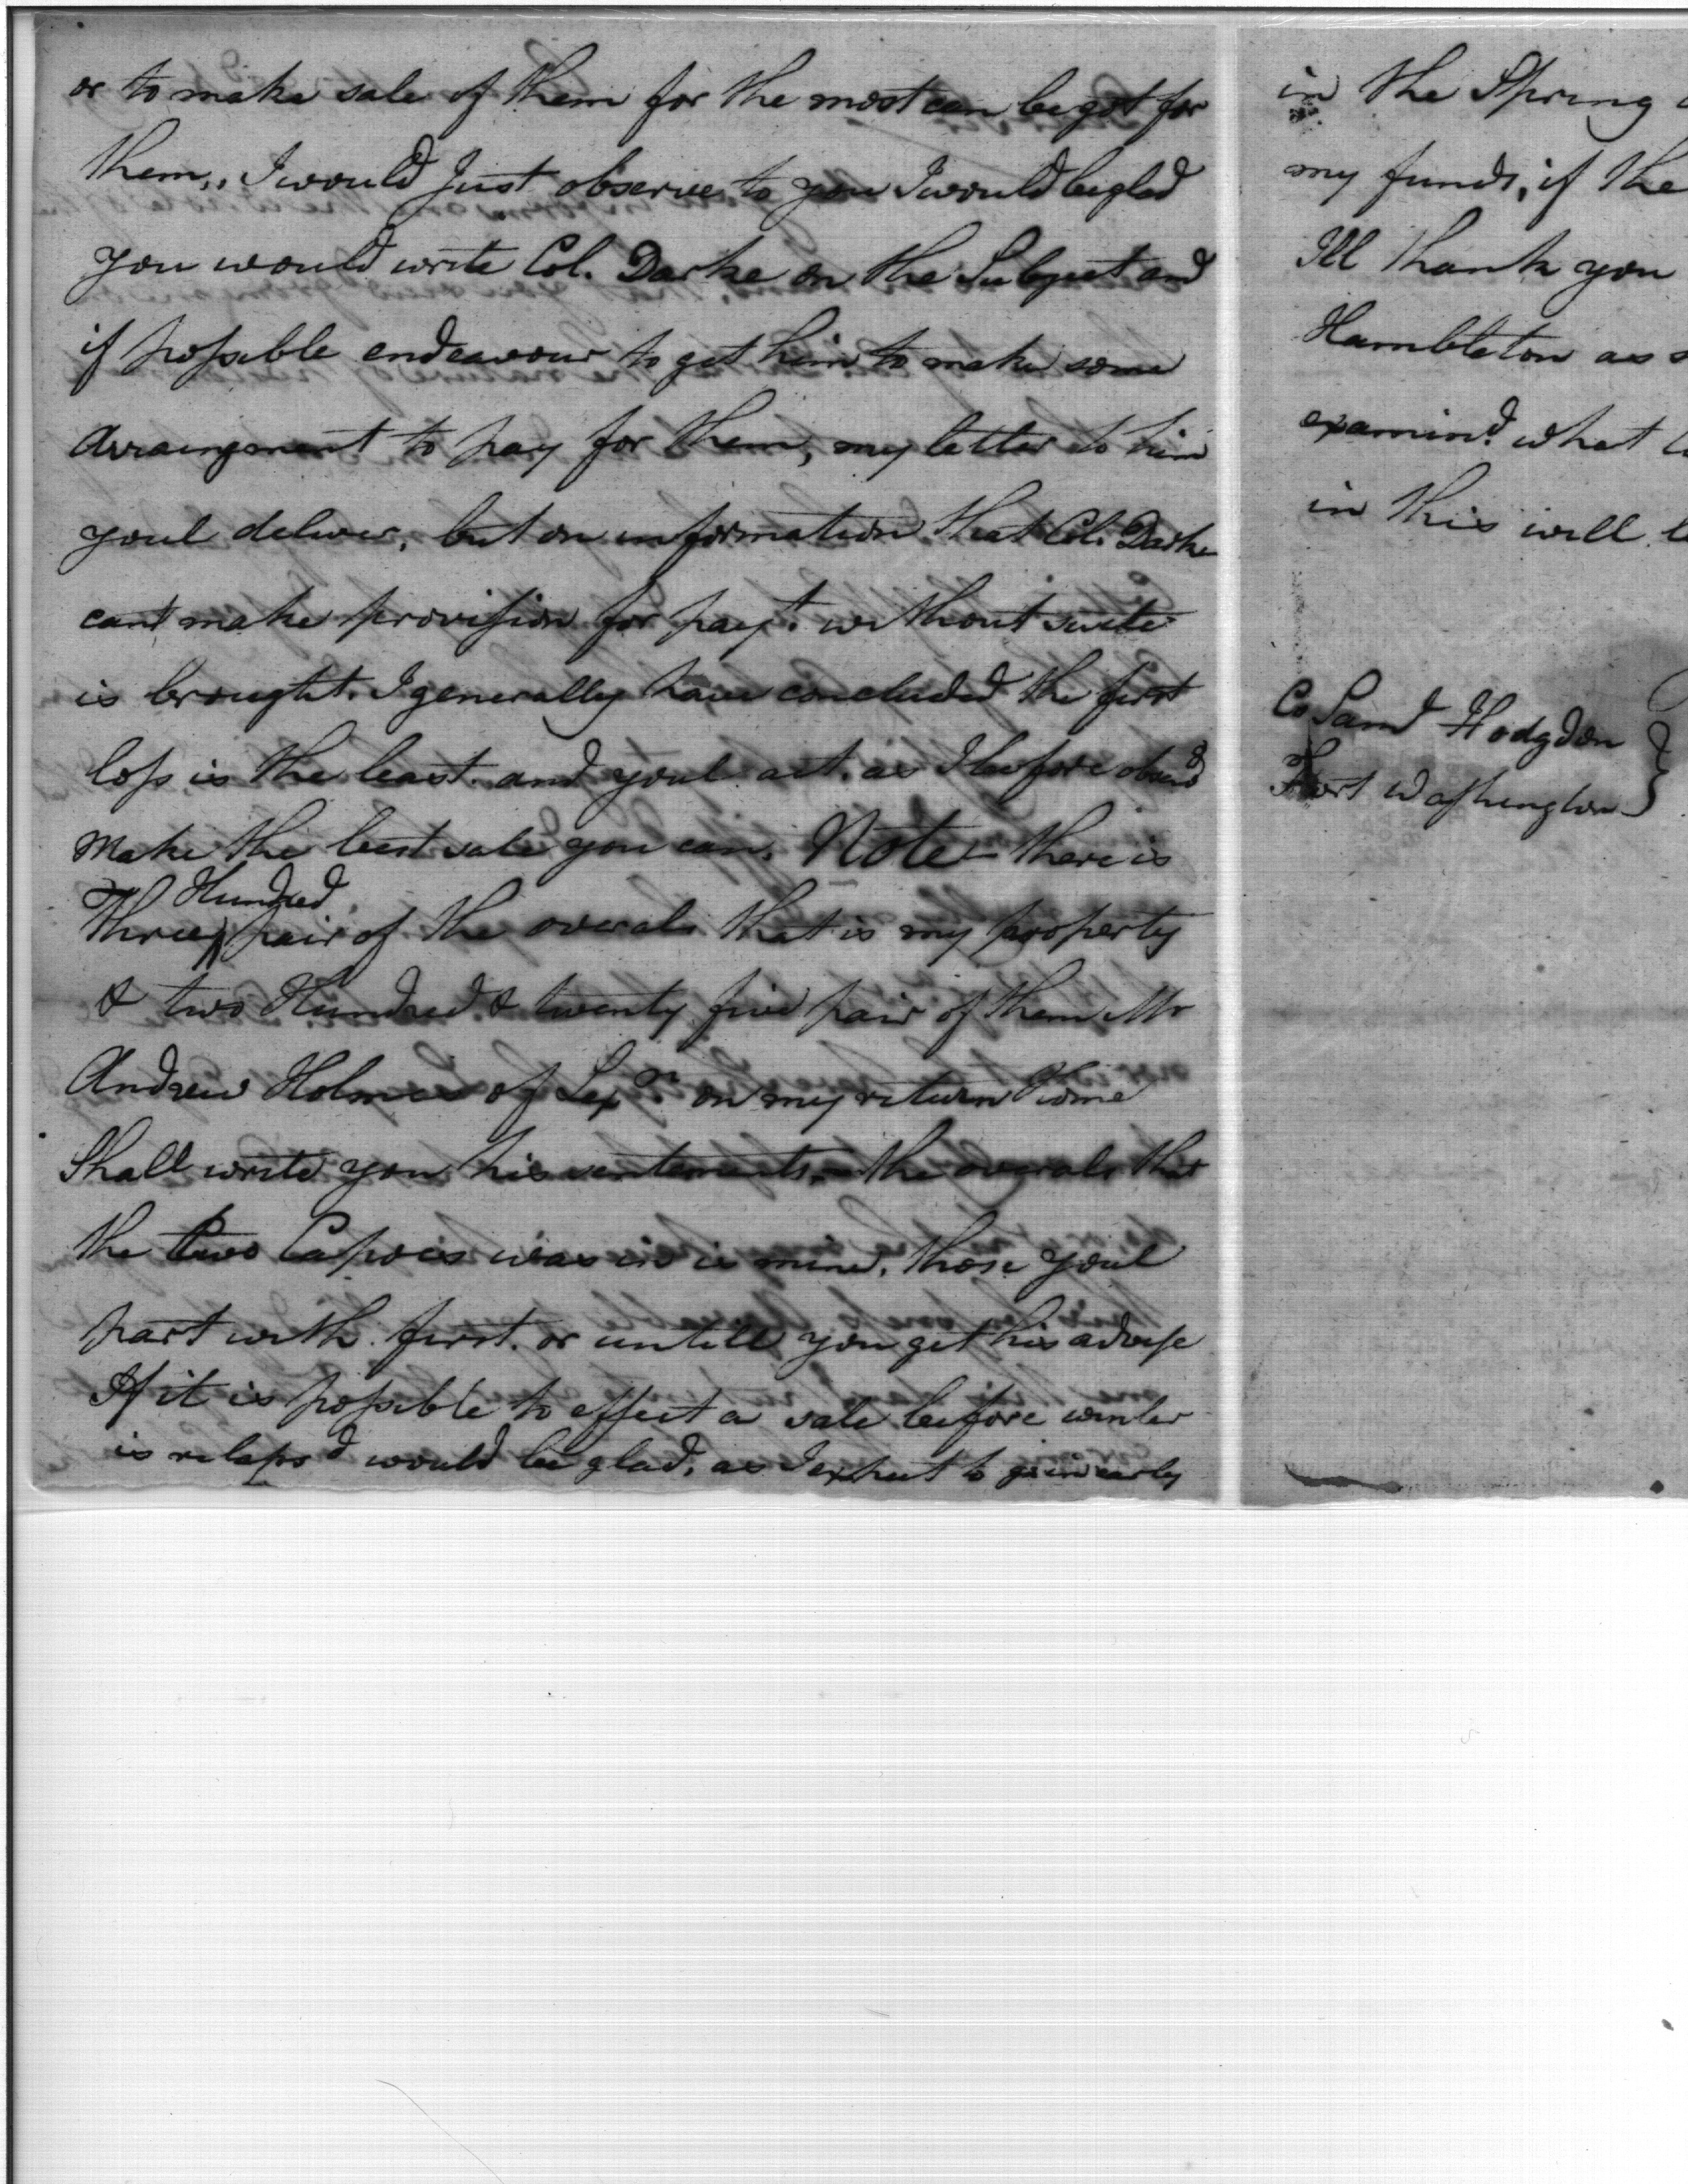 or to make sale of them for the most can be got for
them,, I would Just observe to you I would be glad
you would write Col. Darke on the Subject and
if possible endeavour to get him to make some
Arraingment to pay for them, my letter to him
youl deliver, but on information that Col. Darke
cant make provision for payt. without suite
is brought. I generally have concluded the first
loss is the least. and youl act. as I before obsend
make the best sale you can. Note - there is
Hundred
Three pair of the overals that is my property
& two Hundred & twenty five pair of them Mr
Andrew Holmes of Lexn. on my return Home
Shall write you his sentements. - the overals that
the two was in is mine. those youl
part with first. or untill you get his advise
If it is possible to effect a sale before winter
is relapsd would be glad, as I expect to go in early
in the Spring
my funds, if the
Ill thank you
Hambleton as
examind. what
in this will
Co Saml Hodgdon
Fort Washington